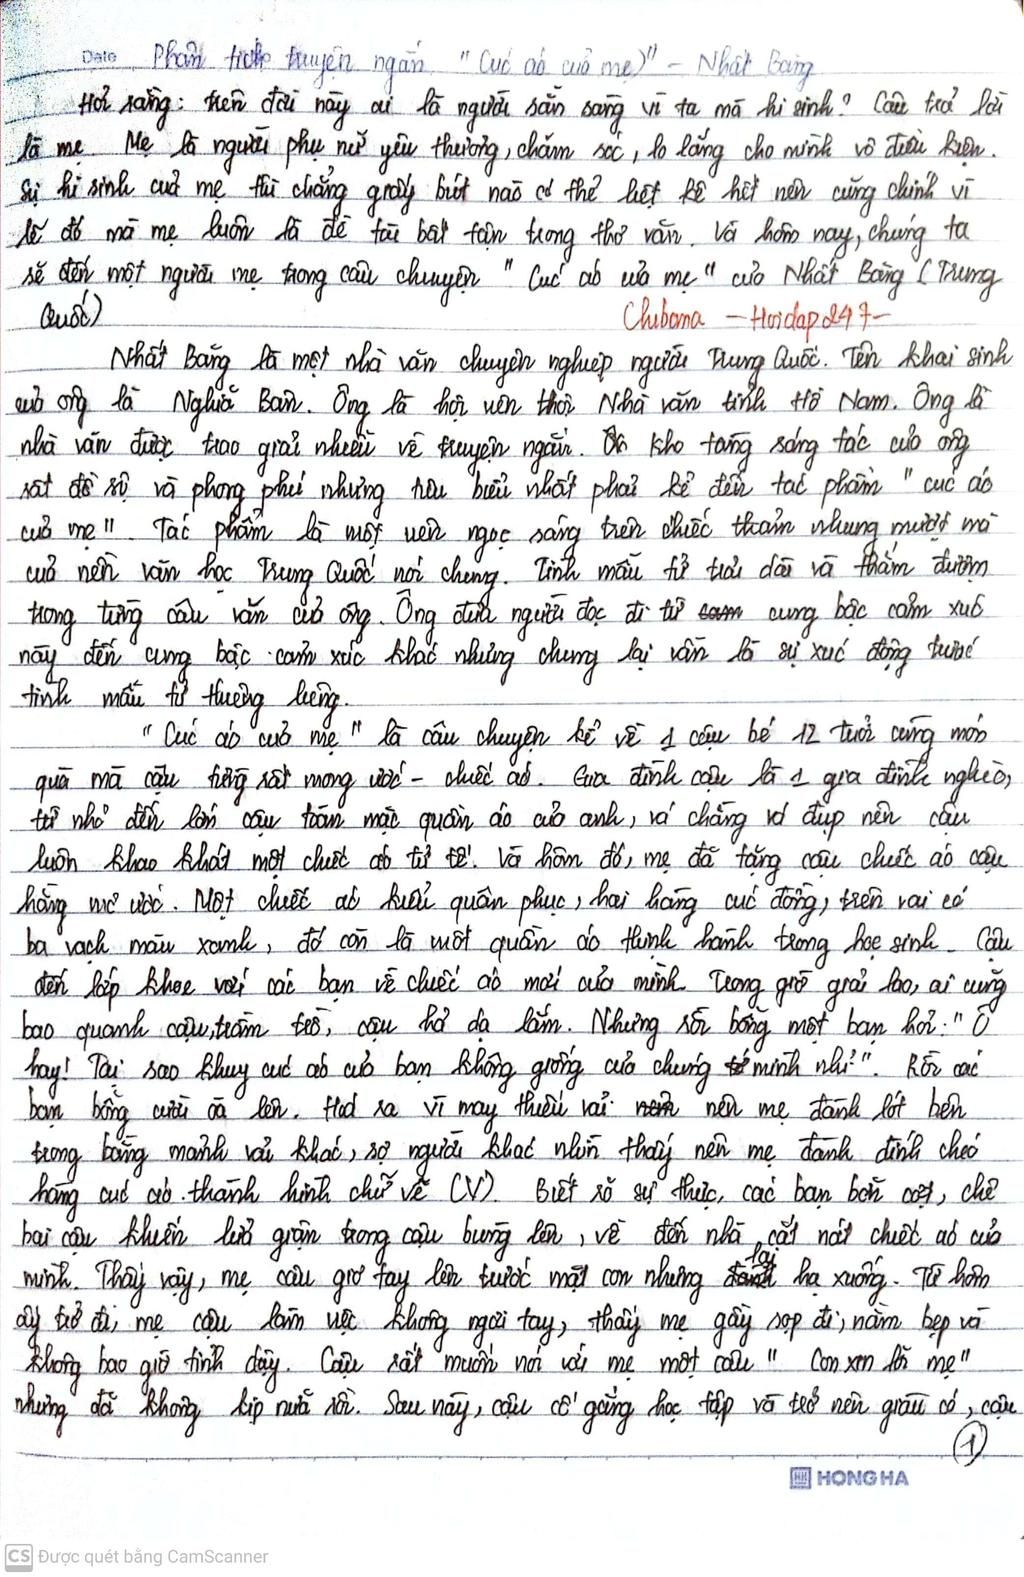 Date Phân tích truyện ngắn "Cúc áo của mẹ" - Nhất Băng
Hỏi rằng: trên đời này ai là người sẵn sàng vì ta mà hi sinh? Câu trả lời
là mẹ. Mẹ là người phụ nữ yêu thương, chăm sóc, lo lắng cho mình vô điều kiện.
Sự hi sinh của mẹ thì chẳng giấy bút nào có thể liệt kê hết nên cũng chính vì
lẽ đó mà mẹ luôn là đề tài bất tận trong thơ văn. Và hôm nay, chúng ta
sẽ đến một người mẹ trong câu chuyện "Cúc áo của mẹ" của Nhất Băng (Trung
Quốc)
Chibama - Hoidap247 -
Nhất Băng là một nhà văn chuyên nghiệp người Trung Quốc. Tên khai sinh
của ông là Nghiã Ban. Ông là hội viên thội Nhà văn tỉnh Hồ Nam. Ông là
nhà văn được trao giải nhiều về truyện ngắn. Kho tàng sáng tác của ông
rất đồ sộ và phong phú nhưng tiêu biểu nhất phải kể đến tác phẩm "cúc áo
của mẹ". Tác phẩm là một viên ngọc sáng trên chiếc thảm nhung mượt mà
của nền văn học Trung Quốc nói chung. Tình mẫu tử trải dài và thấm đượm
trong từng câu văn của ông. Ông đưa người đọc đi từ cung bậc cảm xúc
này đến cung bậc cảm xúc khác nhưng chung lại vẫn là sự xúc động trước
tình mẫu tử thiêng liêng.
"Cúc áo của mẹ" là câu chuyện kể về 1 cậu bé 12 tuổi cùng món
quà mà cậu từng rất mong ước - chiếc áo. Gia đình cậu là 1 gia đình nghèo,
từ nhỏ đến lớn cậu toàn mặc quần áo của anh, vá chằng vá đụp nên cậu
luôn khao khát một chiếc áo tử tế. Và hôm đó, mẹ đã tặng cậu chiếc áo cậu
hằng mơ ước. Một chiếc áo kiểu quân phục, hai hàng cúc đồng, trên vai có
ba vạch màu xanh, đó còn là mốt quần áo thịnh hành trong học sinh. Cậu
đến lớp khoe với các bạn về chiếc áo mới của mình. Trong giờ giải lao, ai cũng
bao quanh cậu, trầm trồ, cậu hả dạ lắm. Nhưng rồi bỗng một bạn hỏi: "Ô
hay! Tại sao khuy cúc áo của bạn không giống của chúng mình nhỉ". Rồi các
bạn bỗng cười oà lên. Hoá ra vì may thiếu vải nên mẹ đành lót bên
trong bằng mảnh vải khác, sợ người khác nhìn thấy nên mẹ đành đính chéo
hàng cúc áo thành hình chữ vê (V). Biết rõ sự thực, các bạn bỡn cợt, chê
bai cậu khiến lửa giận trong cậu bừng lên, về đến nhà cắt nát chiếc áo của
mình. Thấy vậy, mẹ cậu giơ tay lên trước mặt con nhưng lại hạ xuống. Từ hôm
ấy trở đi, mẹ cậu làm việc không ngơi tay, thấy mẹ gầy sọp đi, nằm bẹp và
không bao giờ tỉnh dậy. Cậu rất muốn nói với mẹ một câu "Con xin lỗi mẹ"
nhưng đã không kịp nữa rồi. Sau này, cậu cố gắng học tập và trở nên giàu có, cậu
1
HK HONG HA
CS Được quét bằng CamScanner